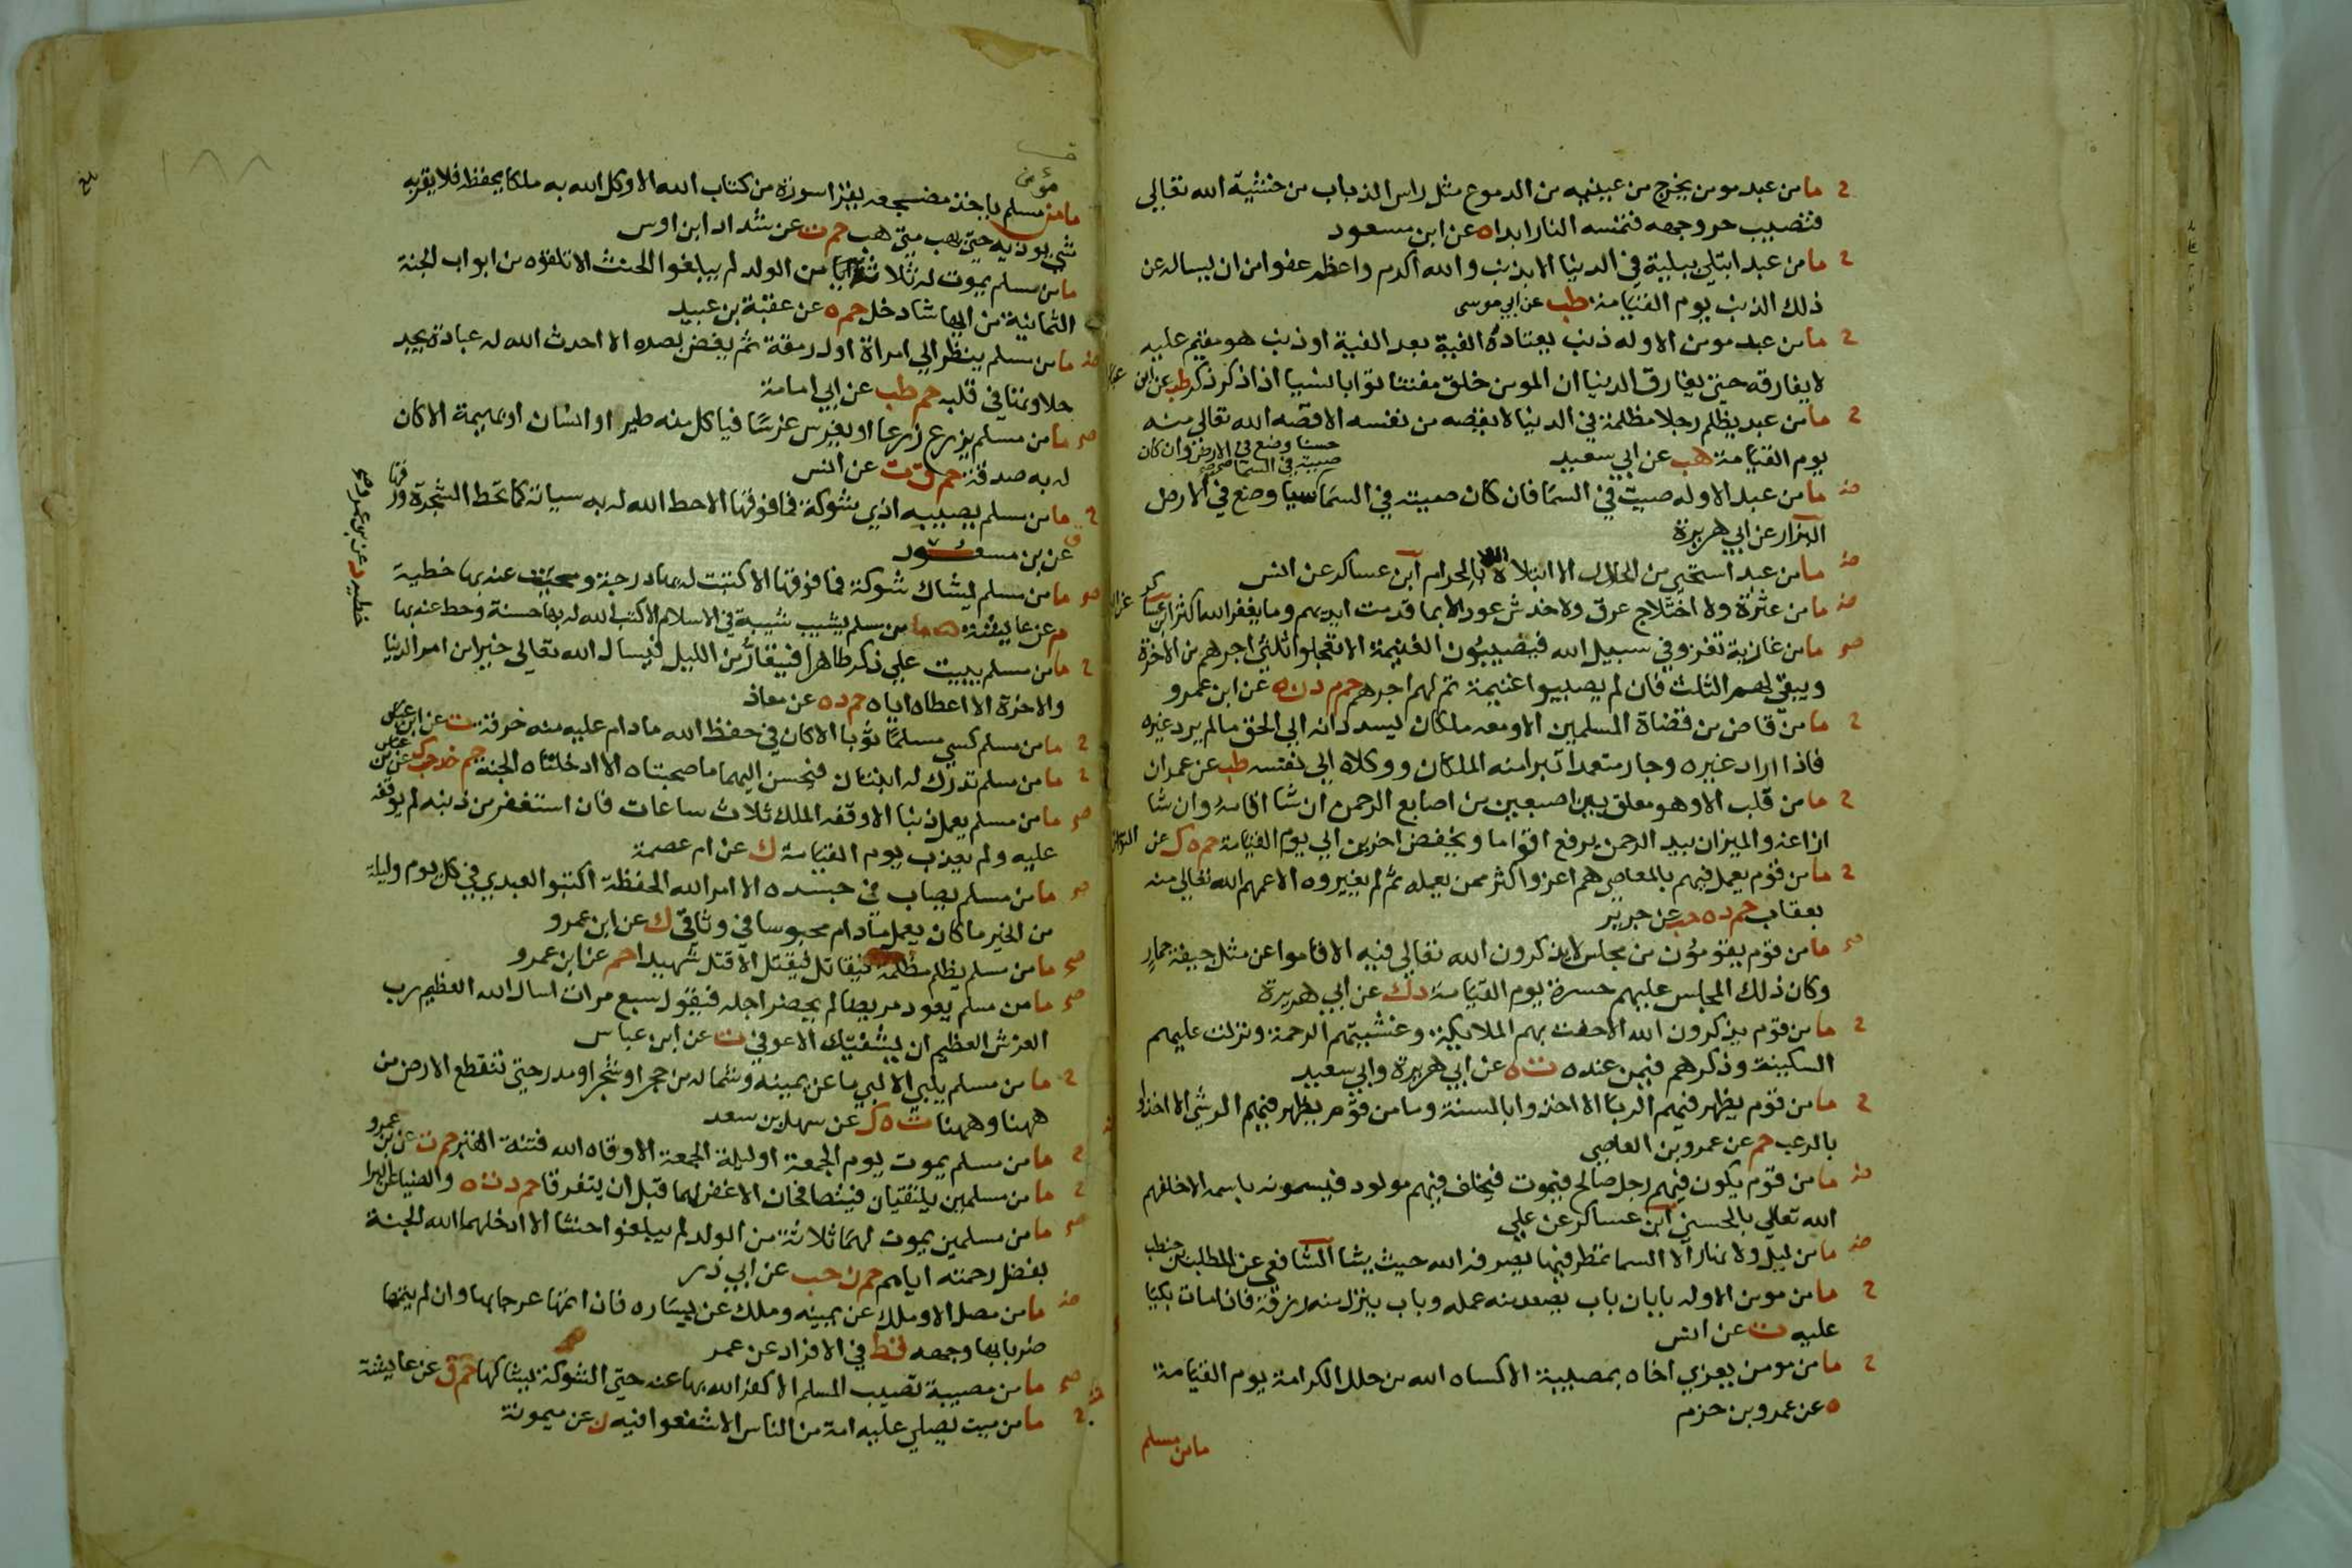 ح ما من عبد مومن يخرج من عينيه من الدموع مثل راس الذباب من خشية الله تعالي
فتصيب حر وجهه فتمسه النار ابدا ه عن ابن مسعود
ح ما من عبد ابتلي ببلية في الدنيا الا بذنب والله اكرم واعظم عفوا من ان يساله عن
ذلك الذنب يوم القيامة طب عن ابي موسى
ح ما من عبد مومن الا وله ذنب يعتاده الفية بعد الفية او ذنب هو مقيم عليه
لا يفارقه حتي يفارق الدنيا ان المومن خلق مفتنا توابا نسيا اذا ذكر ذكر طب عن ابن عباس
ح ما من عبد يظلم رجلا مظلمة في الدنيا لا يقصه من نفسه الا قصه الله تعالي منه
يوم القيامة هب عن ابي سعيد
حسنا وضع في الارض وان كان
صيته في السما
ض ما من عبد الا وله صيت في السما فان كان صيته في السما سيا وضع في الارض
البزار عن ابي هريرة
ض ما من عبد استحي من الحلال الا ابتلاه الله بالحرام ابن عساكر عن انس
ض ما من عثرة ولا اختلاج عرق ولا خدش عود الا بما قدمت ايديهم وما يغفر الله اكثر ابن عساكر
صح ما من غازية تغزو في سبيل الله فيصيبون الغنيمة الا تعجلوا ثلثي اجرهم من الاخرة
ويبقي لهم الثلث فان لم يصيبوا غنيمة تم لهم اجرهم حم م د ن ه عن ابن عمرو
ح ما من قاض من قضاة المسلمين الا ومعه ملكان يسددانه الي الحق ما لم يرد غيره
فاذا اراد غيره وجار متعمدا تبرا منه الملكان ووكلاه الي نفسه طب عن عمران
ح ما من قلب الا وهو معلق بين اصبعين من اصابع الرحمن ان شا اقامه وان شا
ازاغه والميزان بيد الرحمن يرفع اقواما ويخفض اخرين الي يوم القيامة حم ه ك عن النواس
ح ما من قوم يعمل فيهم بالمعاصي هم اعز واكثر ممن يعمله ثم لم يغيروه الا عمهم الله تعالي منه
بعقاب حم د ه حب عن جرير
صح ما من قوم يقومون من مجلس لا يذكرون الله تعالي فيه الا قاموا عن مثل جيفة حمار
وكان ذلك المجلس عليهم حسرة يوم القيامة د ك عن ابي هريرة
ح ما من قوم يذكرون الله الا حفت بهم الملايكة وغشيتهم الرحمة ونزلت عليهم
السكينة وذكرهم فيمن عنده ت ه عن ابي هريرة وابي سعيد
ح ما من قوم يظهر فيهم الربا الا اخذوا بالسنة وما من قوم يظهر فيهم الرشي الا اخذوا
بالرعب حم عن عمرو بن العاصي
ض ما من قوم يكون فيهم رجل صالح فيموت فيخلف فيهم مولود فيسمونه باسمه الا خلفهم
الله تعالي بالحسني ابن عساكر عن علي
ض ما من ليل ولا نهار الا السما تمطر فيها يصرفه الله حيث يشا الشافعي عن المطلب بن حنطب
ح ما من مومن الا وله بابان باب يصعد منه عمله وباب ينزل منه رزقه فاذا مات بكيا
عليه ت عن انس
ح ما من مومن يعزي اخاه بمصيبة الا كساه الله من حلل الكرامة يوم القيامة
ه عن عمرو بن حزم
ما من مسلم
١٨٨
بلغ
مؤمن
ما من مسلم ياخذ مضجعه يقرا سورة من كتاب الله الا وكل الله به ملكا يحفظه فلا يقربه
شي يوذيه حتي يهب متي هب حم ت عن شداد ابن اوس
ما من مسلم يموت له ثلاثة من الولد لم يبلغوا الحنث الا تلقوه من ابواب الجنة
الثمانية من ايها شا دخل حم ه عن عقبة بن عبيد
ض ما من مسلم ينظر الي امراة اول رمقة ثم يغض بصره الا احدث الله له عبادة يجد
حلاوتها في قلبه حم طب عن ابي امامة
صح ما من مسلم يزرع زرعا او يغرس غرسا فياكل منه طير او انسان او بهيمة الا كان
له به صدقة حم ق ت عن انس
ح ما من مسلم يصيبه اذي شوكة فما فوقها الا حط الله له به سياته كما تحط الشجرة ورقها
ق عن بن مسعود
صح ما من مسلم يشاك شوكة فما فوقها الا كتبت له بها درجة ومحيت عنه بها خطية
م عن عايشة ما من مسلم يشيب شيبة في الاسلام الا كتب الله له بها حسنة وحط عنه بها
خطية د عن بن عمرو صح
ح ما من مسلم يبيت علي ذكر طاهرا فيتعار من الليل فيسال الله تعالي خيرا من امر الدنيا
والاخرة الا اعطاه اياه حم د ه عن معاذ
ح ما من مسلم كسي مسلما ثوبا الا كان في حفظ الله ما دام عليه منه خرقة ت عن ابن عباس
ح ما من مسلم تدرك له ابنتان فيحسن اليهما ما صحبتاه الا ادخلتاه الجنة حم خد حب ك عن بن عباس
صح ما من مسلم يعمل ذنبا الا وقفه الملك ثلاث ساعات فان استغفر من ذنبه لم يوقفه
عليه ولم يعذب يوم القيامة ك عن ام عصمة
صح ما من مسلم يصاب في جسده الا امر الله الحفظة اكتبوا لعبدي في كل يوم وليلة
من الخير ما كان يعمل مادام محبوسا في وثاقي ك عن ابن عمرو
صح ما من مسلم يظلم مظلمة فيقاتل فيقتل الا قتل شهيدا حم عن ابن عمرو
صح ما من مسلم يعود مريضا لم يحضر اجله فيقول سبع مرات اسال الله العظيم رب
العرش العظيم ان يشفيك الا عوفي ت عن ابن عباس
ح ما من مسلم يلبي الا لبي ما عن يمينه وشماله من حجر او شجر او مدر حتي تنقطع الارض من
ههنا وههنا ت ه ك عن سهل بن سعد
ح ما من مسلم يموت يوم الجمعة او ليلة الجمعة الا وقاه الله فتنة القبر حم ت عن بن عمرو
ح ما من مسلمين يلتقيان فيتصافحان الا غفر لهما قبل ان يتفرقا حم د ت ه والضيا عن البرا
صح ما من مسلمين يموت لهما ثلاثة من الولد لم يبلغوا حنثا الا ادخلهما الله الجنة
بفضل رحمته اياهم حم ن حب عن ابي ذر
ض ما من مصل الا وملك عن يمينه وملك عن يساره فان اتمها عرجا بها وان لم يتمها
ضربا بها وجهه قط في الافراد عن عمر
صح ما من مصيبة تصيب المسلم الا كفر الله بها عنه حتي الشوكة يشاكها حم ق عن عايشة
ح ما من ميت يصلي عليه امة من الناس الا شفعوا فيه ن عن ميمونة